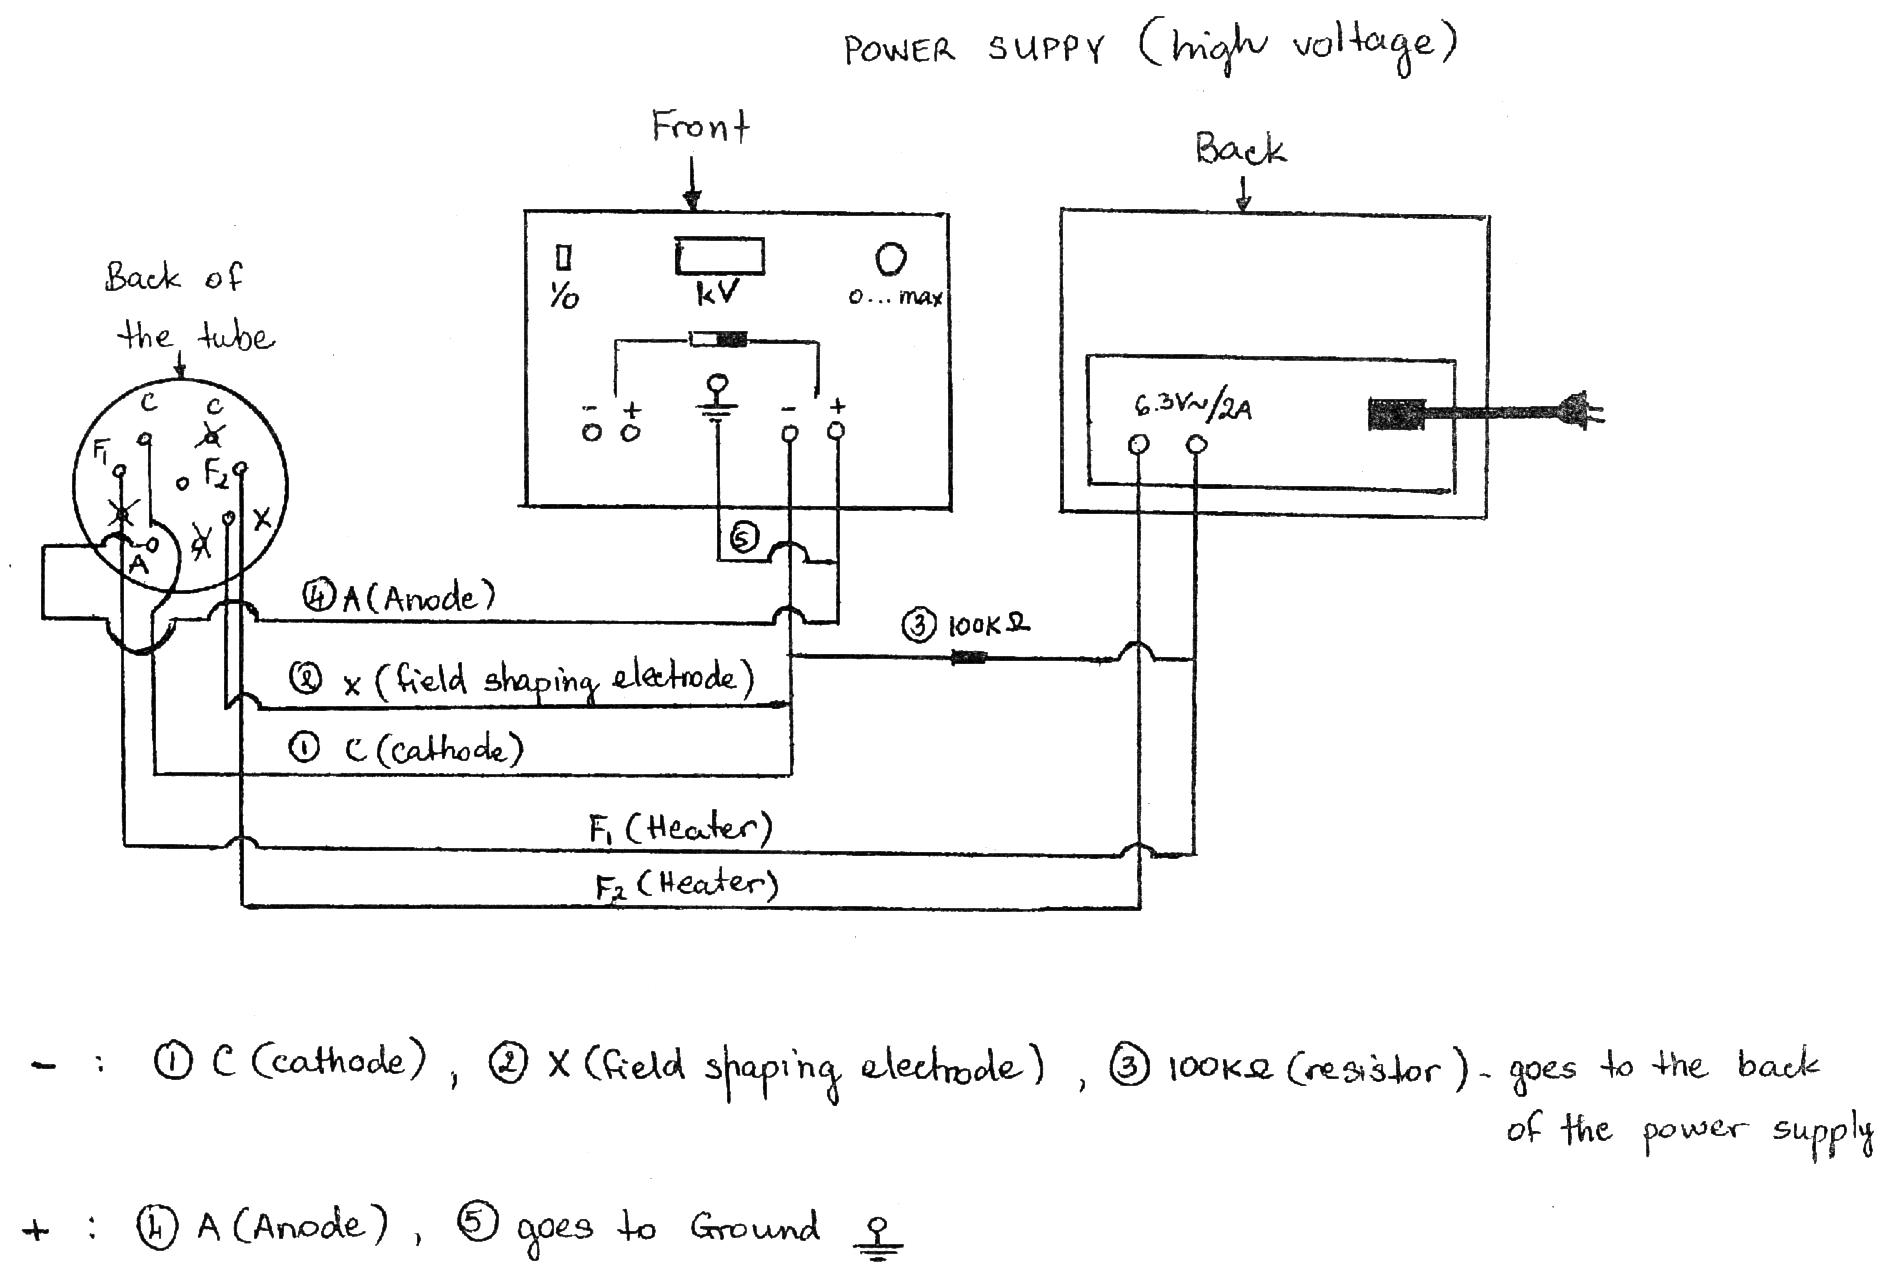 POWER SUPPY (high voltage)
Front
Back
Back of
the tube
1/0
kV
0...max
- +
- +
6.3V~/2A
C C
F1
F2
X
A
⑤
④ A (Anode)
③ 100KΩ
② X (field shaping electrode)
① C (cathode)
F1 (Heater)
F2 (Heater)
- : ① C (cathode), ② X (field shaping electrode), ③ 100KΩ (resistor) - goes to the back
of the power supply
+ : ④ A (Anode), ⑤ goes to Ground